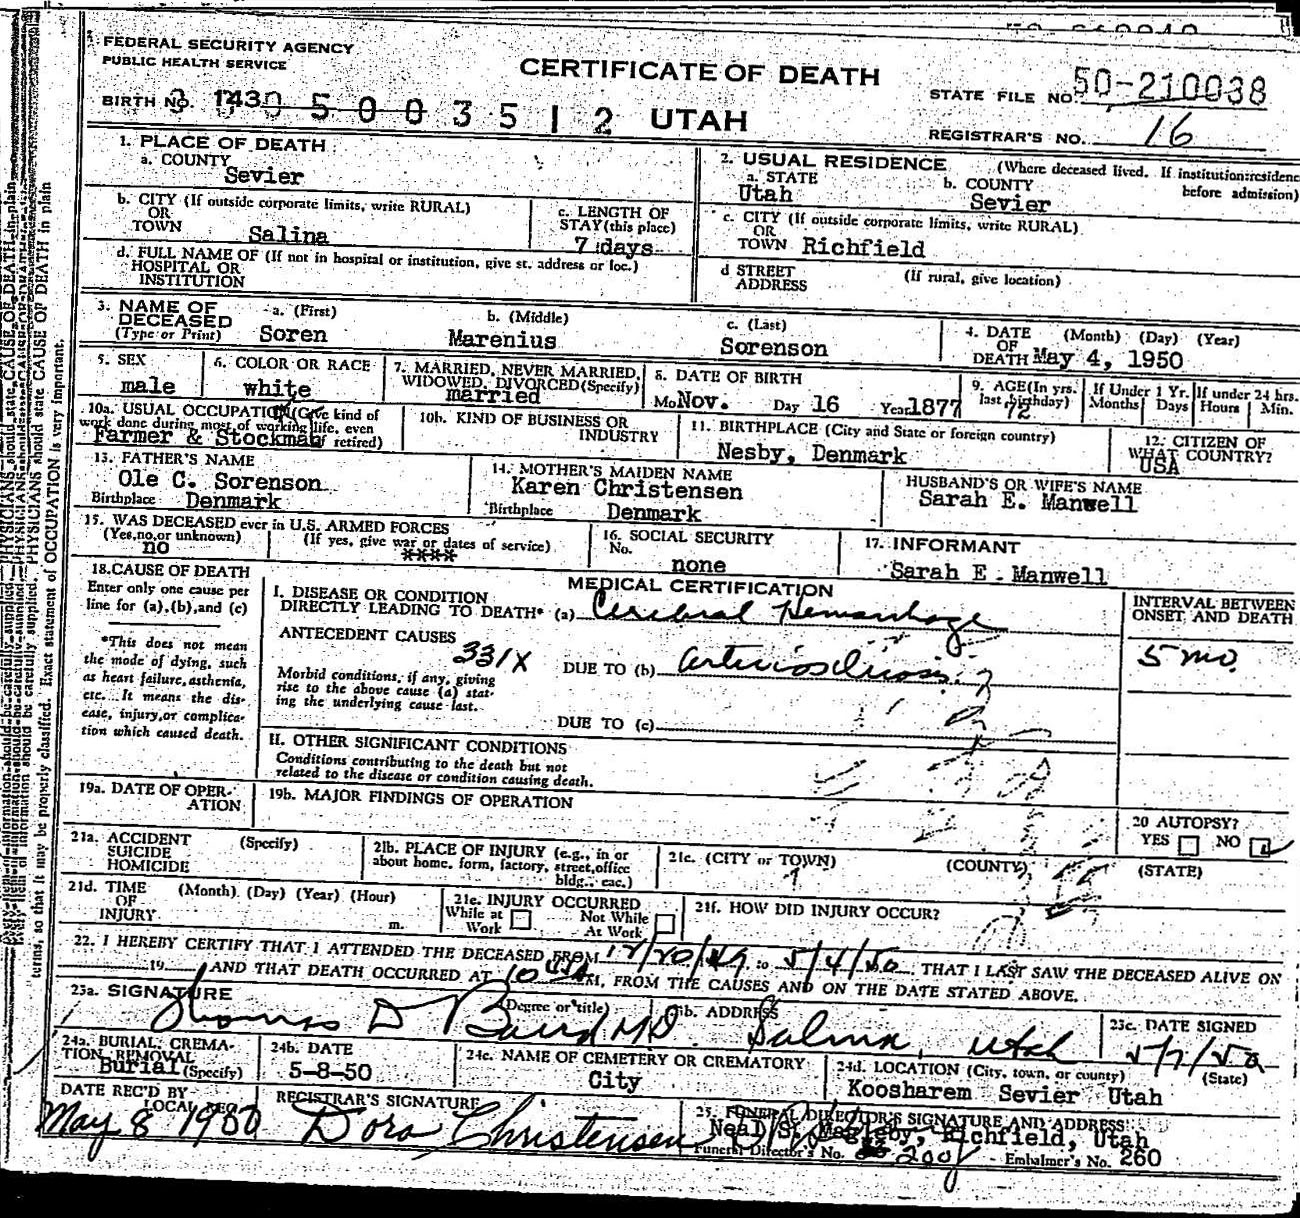 FEDERAL SECURITY AGENCY
PUBLIC HEALTH SERVICE
CERTIFICATE OF DEATH
STATE FILE NO. 50-210038
BIRTH NO. 1430 5 0 0 3 5 1 2 UTAH
REGISTRAR'S NO. 16
1. PLACE OF DEATH
a. COUNTY
Sevier
2. USUAL RESIDENCE (Where deceased lived. If institution:residence before admission)
a. STATE
Utah
b. COUNTY
Sevier
b. CITY (If outside corporate limits, write RURAL)
OR
TOWN Salina
c. LENGTH OF
STAY (this place)
7 days
c. CITY (If outside corporate limits, write RURAL)
OR
TOWN Richfield
d. FULL NAME OF (If not in hospital or institution, give st. address or loc.)
HOSPITAL OR
INSTITUTION
d STREET (If rural, give location)
ADDRESS
3. NAME OF
DECEASED
(Type or Print)
a. (First)
Soren
b. (Middle)
Marenius
c. (Last)
Sorenson
4. DATE (Month) (Day) (Year)
OF
DEATH May 4, 1950
5. SEX
male
6. COLOR OR RACE
white
7. MARRIED, NEVER MARRIED,
WIDOWED, DIVORCED (Specify)
married
8. DATE OF BIRTH
Mo Nov. Day 16 Year 1877
9. AGE (In yrs.
last birthday)
72
If Under 1 Yr.
Months Days
If under 24 hrs.
Hours Min.
10a. USUAL OCCUPATION (Give kind of
work done during most of working life, even
if retired)
Farmer & Stockman
10b. KIND OF BUSINESS OR
INDUSTRY
11. BIRTHPLACE (City and State or foreign country)
Nesby, Denmark
12. CITIZEN OF
WHAT COUNTRY?
USA
13. FATHER'S NAME
Ole C. Sorenson
Birthplace Denmark
14. MOTHER'S MAIDEN NAME
Karen Christensen
Birthplace Denmark
HUSBAND'S OR WIFE'S NAME
Sarah E. Manwell
15. WAS DECEASED ever in U.S. ARMED FORCES
(Yes,no,or unknown) (If yes, give war or dates of service)
no ****
16. SOCIAL SECURITY
No.
none
17. INFORMANT
Sarah E. Manwell
18. CAUSE OF DEATH
Enter only one cause per
line for (a),(b),and (c)
*This does not mean
the mode of dying, such
as heart failure,asthenia,
etc. It means the dis-
ease, injury,or complica-
tion which caused death.
MEDICAL CERTIFICATION
I. DISEASE OR CONDITION
DIRECTLY LEADING TO DEATH* (a) Cerebral Hemorrhage
ANTECEDENT CAUSES
331X
DUE TO (b) arteriosclerosis
Morbid conditions, if any, giving
rise to the above cause (a) stat-
ing the underlying cause last.
DUE TO (c)
INTERVAL BETWEEN
ONSET AND DEATH
5 mo.
II. OTHER SIGNIFICANT CONDITIONS
Conditions contributing to the death but not
related to the disease or condition causing death.
19a. DATE OF OPER-
ATION
19b. MAJOR FINDINGS OF OPERATION
20 AUTOPSY?
YES NO
21a. ACCIDENT (Specify)
SUICIDE
HOMICIDE
21b. PLACE OF INJURY (e.g., in or
about home, form, factory, street,office
bldg., eac.)
21c. (CITY or TOWN) (COUNTY) (STATE)
21d. TIME (Month) (Day) (Year) (Hour)
OF
INJURY m.
21e. INJURY OCCURRED
While at Work Not While At Work
21f. HOW DID INJURY OCCUR?
22. I HEREBY CERTIFY THAT I ATTENDED THE DECEASED FROM 12/20/49, to 5/4/50, THAT I LAST SAW THE DECEASED ALIVE ON
19 AND THAT DEATH OCCURRED AT 10 45 A M, FROM THE CAUSES AND ON THE DATE STATED ABOVE.
23a. SIGNATURE (Degree or title)
Thomas D Baird M.D.
23b. ADDRESS
Salina, Utah
23c. DATE SIGNED
5/7/50
24a. BURIAL, CREMA-
TION, REMOVAL
Burial (Specify)
24b. DATE
5-8-50
24c. NAME OF CEMETERY OR CREMATORY
City
24d. LOCATION (City, town, or county) (State)
Koosharem Sevier Utah
DATE REC'D BY
LOCAL REG
May 8 1950
REGISTRAR'S SIGNATURE
Dora Christensen
25. FUNERAL DIRECTOR'S SIGNATURE AND ADDRESS
Neal S. Magleby, Richfield, Utah
Funeral Director's No. 200 Embalmer's No. 260